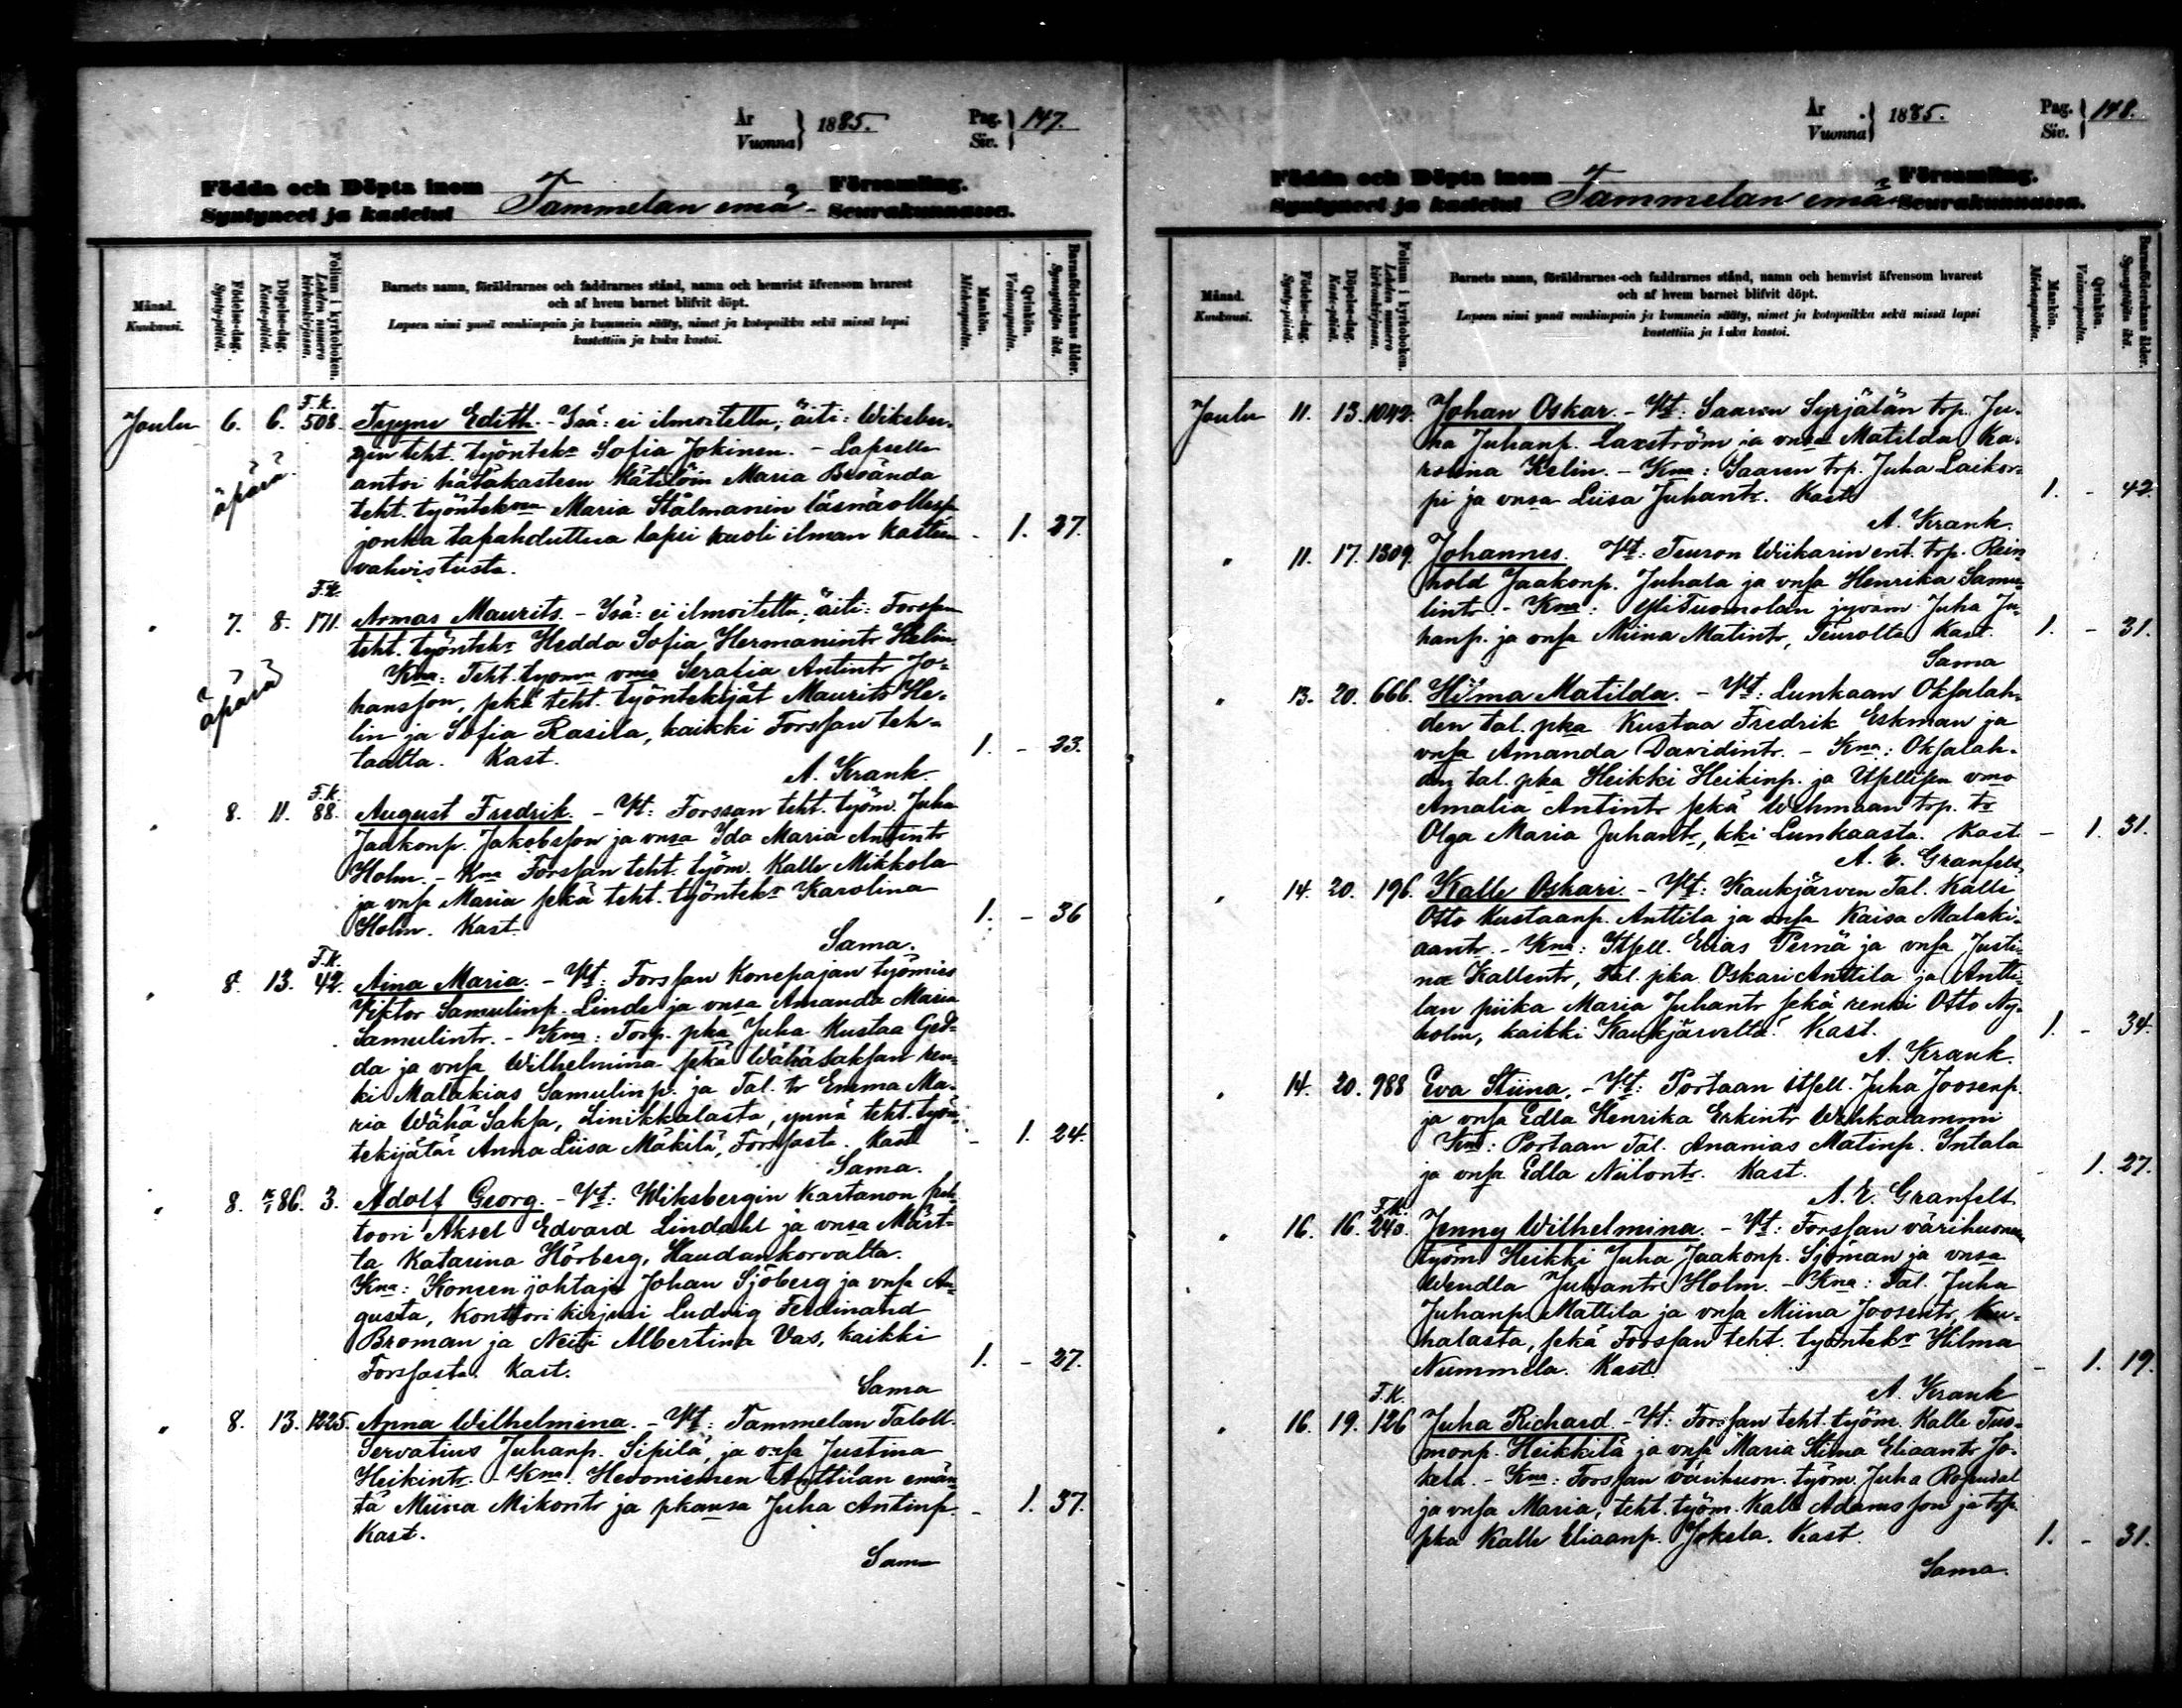 År Vuonna } 1885. Pag. Siv. } 147.
Födda och Döpta inom Församling.
Syntyneet ja kastetut Tammelan emä- Seurakunnassa.
Månad. Kuukausi.
Födelse-dag. Synty-päivä.
Döpelse-dag. Kaste-päivä.
Folium i kyrkoboken. Lehden numero kirkonkirjassa.
Barnets namn, föräldrarnes och faddrarnes stånd, namn och hemvist äfvensom hvarest
och af hvem barnet blifvit döpt.
Lapsen nimi ynnä vanhimpain ja kummein sääty, nimet ja kotopaikka sekä missä lapsi
kastettiin ja kuka kastoi.
Mankön. Miehenpuolta.
Qvinkön. Vaimonpuolta.
Barnaföderskans ålder. Synnyttäjän ikä.
F.K.
Joulu 6. 6. 508. Tyyne Edith. - Isä: ei ilmoitettu; äiti: Wiksber-
gin teht. työntekr Sofia Jokinen. - Lapselle
äpärä antoi hätäkasteen Kätilöin Maria Bröända
teht. työntekn Maria Stålmanin läsnäollessa
jonka tapahduttua lapsi kuoli ilman kasteen - 1. 27.
vahvistusta.
F.K.
" 7. 8. 171. Armas Maurits. - Isä: ei ilmoitettu; äiti: Forssan
teht. työntekr Hedda Sofia Hermanintr Helin.
äpärä Kna: Teht. tyomn vmo Serafia Antintr Jo-
hansson, sekä teht. työntekijät Maurits He-
lin ja Sofia Rasila, kaikki Forssan teh-
taalta. Kast. 1. - 23.
A. Krank.
F.K.
" 8. 11. 88. August Fredrik. - Vt: Forssan teht. työm. Juha
Jaakonp. Jakobsson ja vnsa Ida Maria Antintr
Holm. - Kna Forssan teht. työm. Kalle Mikkola
ja vnsa Maria sekä teht. työntekr Karolina
Holm. Kast. 1. - 36
Sama.
F.K.
" 8. 13. 42. Aina Maria. - Vt: Forssan Konepajan työmies
Viktor Samulinp. Linde ja vnsa Amanda Maria
Samulintr. - Kna: Torp. pka Juha Kustaa Ged-
da ja vnsa Wilhelmina sekä WähäSaksan ren-
ki Malakias Samulinp. ja Tal. tr Emma Ma-
ria Wähä Saksa, Linikkalasta, ynnä teht. työn-
tekijätär Anna Liisa Mäkilä, Forssasta. Kast - 1. 24.
Sama.
" 8. 86. 3. Adolf Georg. - Vt: Wiksbergin Kartanon
toori Aksel Edvard Lindahl ja vnsa Märt-
ta Katarina Hörberg, Haudankorvalta.
Kna: Koneen johtaja Johan Sjöberg ja vnsa Au-
gusta, Konttori kirjuri Ludvig Ferdinand
Broman ja Neiti Albertina Vas, kaikki
Forssasta. Kast. 1. - 27.
Sama
" 8. 13. 1225. Anna Wilhelmina. - Vt: Tammelan Taloll.
Servatius Juhanp. Sipilä, ja vnsa Justina
Heikintr. - Kna: Hevoniemen Anttilan emän-
tä Miina Mikontr ja pkansa Juha Antinp. - 1. 37.
Kast.
Sama
År Vuonna } 1885. Pag. Siv. } 148.
Födda och Döpta inom Församling.
Syntyneet ja kastetut Tammelan emä Seurakunnassa.
Månad. Kuukausi.
Födelse-dag. Synty-päivä.
Döpelse-dag. Kaste-päivä.
Folium i kyrkoboken. Lehden numero kirkonkirjassa.
Barnets namn, föräldrarnes och faddrarnes stånd, namn och hemvist äfvensom hvarest
och af hvem barnet blifvit döpt.
Lapsen nimi ynnä vanhimpain ja kummein sääty, nimet ja kotopaikka sekä missä lapsi
kastettiin ja kuka kastoi.
Mankön. Miehenpuolta.
Qvinkön. Vaimonpuolta.
Barnaföderskans ålder. Synnyttäjän ikä.
Joulu 11. 13. 1042. Johan Oskar. - Vt: Saaren Syrjätän trp. Ju-
ha Juhanp. Laxström ja vnsa Matilda Ka-
roliina Kelin. - Kna: Saaren trp. Juha Laikor-
pi ja vnsa Liisa Juhantr. Kast 1. - 42.
A. Krank.
" 11. 17. 1309. Johannes. Vt: Teuron Wiikarin ent. trp. Rein-
hold Jaakonp. Juhala ja vnsa Henrika Samu-
lintr. - Kna: YliTuomolan jyväm. Juha Ju-
hanp. ja vnsa Miina Matintr, Teurolta Kast. 1. - 31.
Sama
" 13. 20. 666. Hilma Matilda. - Vt: Lunkaan Oksalah-
den tal. pka Kustaa Fredrik Eskman ja
vnsa Amanda Davidintr. - Kna: Oksalah-
den tal. pka Heikki Heikinp. ja Itsellisen vmo
Amalia Antintr sekä Wehmaan trp. tr
Olga Maria Juhantr, kki Lunkaasta. Kast - 1. 31.
A. E. Granfelt.
" 14. 20. 196. Kalle Oskari. - Vt: Kaukjärven Tal. Kalle
Otto Kustaanp. Anttila ja vnsa Kaisa Malaki-
aantr. - Kna: Itsell. Elias Pernä ja vnsa Justi-
na Kallentr, Tal. pka Oskari Anttila ja Antti-
lan piika Maria Juhantr sekä renki Otto Ny-
holm, kaikki Kaukjärveltä. Kast. 1. - 34.
A. Krank.
" 14. 20. 988 Eva Stiina. - Vt: Portaan itsell. Juha Joosenp.
ja vnsa Edla Henrika Erkintr Wehkalammi
Kna: Portaan Tal. Ananias Matinp. Intala
ja vnsa Edla Niilontr. Kast. - 1. 27.
A. E. Granfelt.
F.K.
" 16. 16. 240. Jenny Wilhelmina. - Vt: Forssan värihuoneen
työm. Heikki Juha Jaakonp. Sjöman ja vnsa
Wendla Juhantr Holm. - Kna: Tal. Juha
Juhanp. Mattila ja vnsa Miina Joosentr, Ku-
halasta, sekä Forssan teht. työntekr Hilma
Nummela. Kast. - 1. 19.
A. Krank
F.K.
" 16. 19. 126 Juha Richard. - Vt: Forssan teht. työm. Kalle Tuo-
monp. Heikkilä ja vnsa Maria Stiina Eliaantr Jo-
kela. - Kna: Forssan värihuon. työm. Juha Rosendal
ja vnsa Maria, teht. työm. Kalle Adamsson ja trp.
pka Kalle Eliaanp. Jokela. Kast. 1. - 31.
Sama.